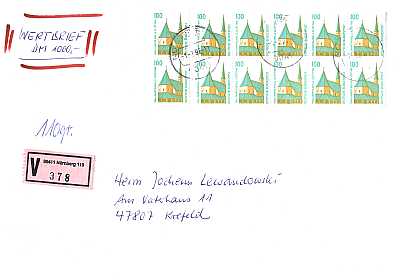 WERTBRIEF
DM 1000,-
100 100 100 100 100 100
100 100 100 100 100 100
110gr.
V
90411 Nürnberg 119
378
Herrn Jochem Lewandowski
Am Vatehaus 11
47807 Krefeld